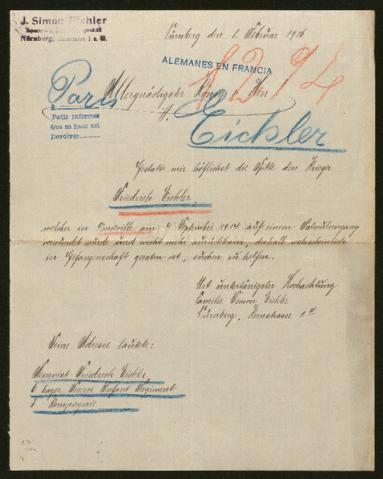 J. Simon Eichler
Nürnberg,
Nürnberg den 1. Februar 1916
ALEMANES EN FRANCIA
8294
Paris
Allergnädigster König u. Herr!
Pedir informes
Que se haga así
Devolver
Eichler
Gestatte mir höflichst die Bitte den Krieger
Friedrich Eichler,
welcher in am 4 September 1914 auf einem Patrouillengang
verwundet wurde und nicht mehr zurückkam, deshalb wahrscheinlich
in Gefangenschaft geraten ist, suchen zu helfen.
Mit untertänigster Hochachtung
Familie Simon Eichler
Nürnberg,
Seine Adresse lautete:
Friedrich Eichler
6 bayer. Reserve Infant. Regiment
Kompagnie